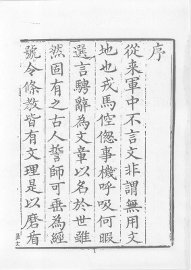 序
從來軍中不言文非謂無用文
地也戎馬倥偬事機呼吸何暇
選言騁辭為文章以名於世雖
然固有之古人誓師可垂為經
號令條教皆有文理是以磨盾